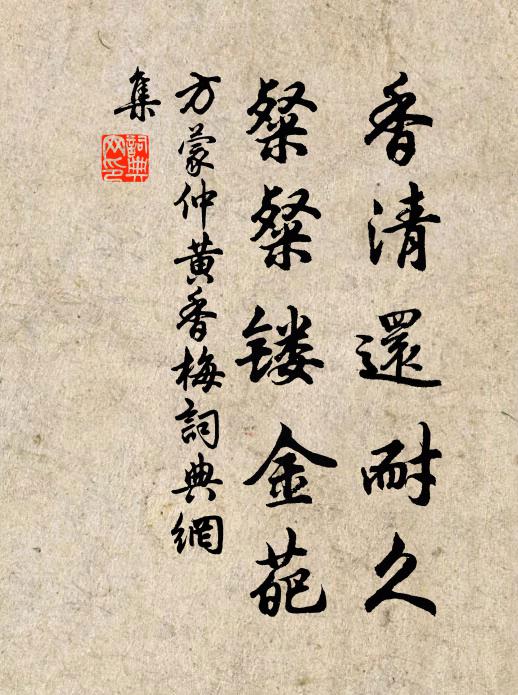 香清還耐久
粲粲镂金葩
方蒙仲黄香梅詞典網
集
詞典
网印